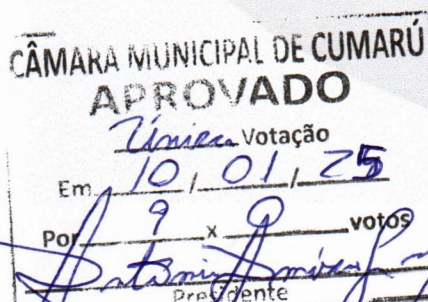 CÂMARA MUNICIPAL DE CUMARÚ
APROVADO
Única Votação
Em 10 / 01 / 25
Por 9 x 0 votos
Presidente